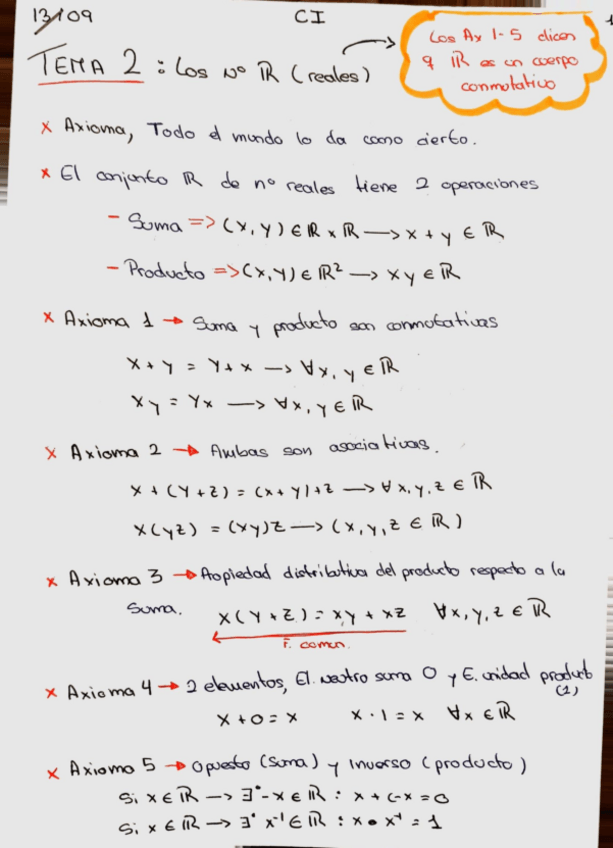 13/09
CI
1
TEMA 2: Los Nº ℝ (reales)
Los Ax 1-5 dicen
q ℝ es un cuerpo
conmutativo
x Axioma, Todo el mundo lo da como cierto.
x El conjunto ℝ de nº reales tiene 2 operaciones
- Suma => (x, y) ∈ ℝ x ℝ → x + y ∈ ℝ
- Producto => (x, y) ∈ ℝ² → xy ∈ ℝ
x Axioma 1 → Suma y producto son conmutativas
x + y = y + x → ∀x, y ∈ ℝ
xy = yx → ∀x, y ∈ ℝ
x Axioma 2 → Ambas son asociativas.
x + (y + z) = (x + y) + z → ∀x, y, z ∈ ℝ
x(yz) = (xy)z → (x, y, z ∈ ℝ)
x Axioma 3 → Propiedad distributiva del producto respecto a la
Suma. x(y + z) = xy + xz ∀x, y, z ∈ ℝ
F. comun.
x Axioma 4 → 2 elementos, El. neutro suma 0 y E. unidad product
(1)
x + 0 = x x · 1 = x ∀x ∈ ℝ
x Axioma 5 → Opuesto (Suma) y Inverso (producto)
Si x ∈ ℝ → ∃· -x ∈ ℝ : x + (-x = 0
Si x ∈ ℝ → ∃· x⁻¹ ∈ ℝ : x • x⁻¹ = 1